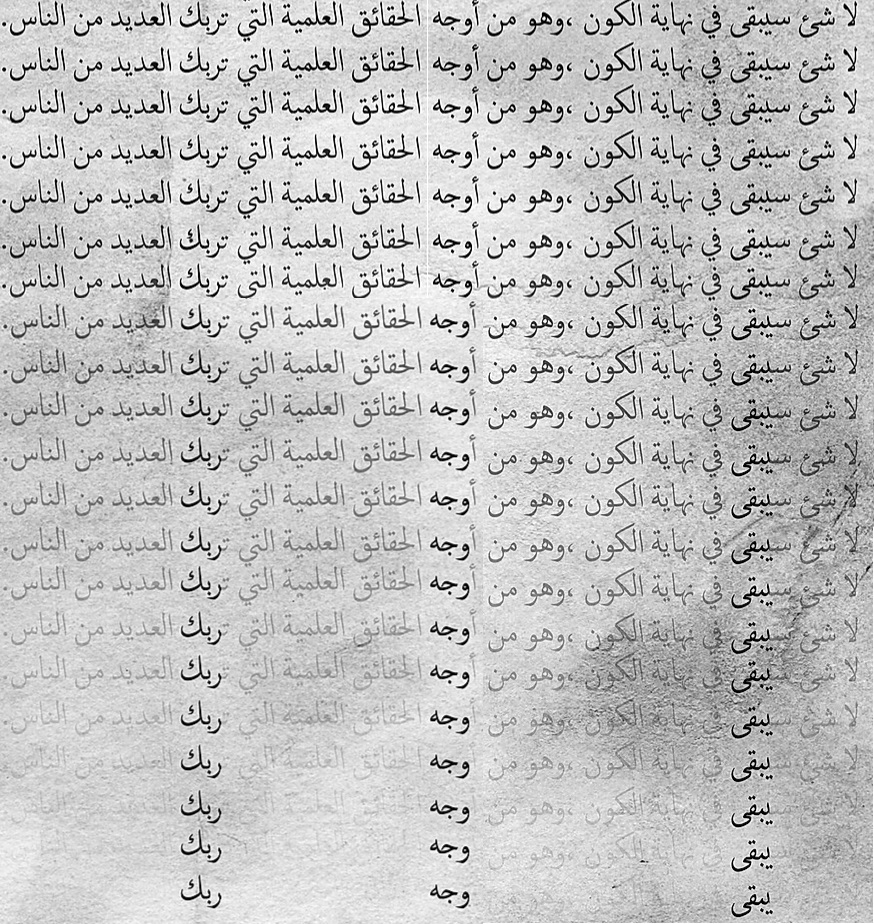 لا شئ سيبقى في نهاية الكون ،وهو من أوجه الحقائق العلمية التي تربك العديد من الناس.
لا شئ سيبقى في نهاية الكون ،وهو من أوجه الحقائق العلمية التي تربك العديد من الناس.
لا شئ سيبقى في نهاية الكون ،وهو من أوجه الحقائق العلمية التي تربك العديد من الناس.
لا شئ سيبقى في نهاية الكون ،وهو من أوجه الحقائق العلمية التي تربك العديد من الناس.
لا شئ سيبقى في نهاية الكون ،وهو من أوجه الحقائق العلمية التي تربك العديد من الناس.
لا شئ سيبقى في نهاية الكون ،وهو من أوجه الحقائق العلمية التي تربك العديد من الناس.
لا شئ سيبقى في نهاية الكون ،وهو من أوجه الحقائق العلمية التي تربك العديد من الناس.
لا شئ سيبقى في نهاية الكون ،وهو من أوجه الحقائق العلمية التي تربك العديد من الناس.
لا شئ سيبقى في نهاية الكون ،وهو من أوجه الحقائق العلمية التي تربك العديد من الناس.
لا شئ سيبقى في نهاية الكون ،وهو من أوجه الحقائق العلمية التي تربك العديد من الناس.
لا شئ سيبقى في نهاية الكون ،وهو من أوجه الحقائق العلمية التي تربك العديد من الناس.
لا شئ سيبقى في نهاية الكون ،وهو من أوجه الحقائق العلمية التي تربك العديد من الناس.
لا شئ سيبقى في نهاية الكون ،وهو من أوجه الحقائق العلمية التي تربك العديد من الناس.
لا شئ سيبقى في نهاية الكون ،وهو من أوجه الحقائق العلمية التي تربك العديد من الناس.
لا شئ سيبقى في نهاية الكون ،وهو من أوجه الحقائق العلمية التي تربك العديد من الناس.
لا شئ سيبقى في نهاية الكون ،وهو من أوجه الحقائق العلمية التي تربك العديد من الناس.
لا شئ سيبقى في نهاية الكون ،وهو من أوجه الحقائق العلمية التي تربك العديد من الناس.
لا شئ يبقى في نهاية الكون ،وهو من وجه الحقائق العلمية التي ربك العديد من الناس.
يبقى الكون ،وهو من وجه ربك
يبقى وجه ربك
يبقى وجه ربك